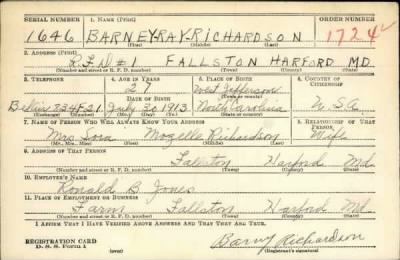 SERIAL NUMBER 1. NAME (Print) ORDER NUMBER
1646 BARNEY-RAY-RICHARDSON 1724
(First) (Middle) (Last)
2. ADDRESS (Print)
R.F.D #1 FALLSTON HARFORD MD.
(Number and street or R. F. D. number) (Town) (County) (State)
3. TELEPHONE 4. AGE IN YEARS 5. PLACE OF BIRTH 6. COUNTRY OF CITIZENSHIP
27 West Jefferson
DATE OF BIRTH (Town or county)
Belair 234F21 July 30 1913 North Carolina U.S.A
(Exchange) (Number) (Mo.) (Day) (Yr.) (State or country)
7. NAME OF PERSON WHO WILL ALWAYS KNOW YOUR ADDRESS 8. RELATIONSHIP OF THAT PERSON
Mrs Mozelle Richardson Wife
(Mr., Mrs., Miss) (First) (Middle) (Last)
9. ADDRESS OF THAT PERSON
Fallston Harford Md
(Number and street or R. F. D. number) (Town) (County) (State)
10. EMPLOYER'S NAME
Ronald B. Jones
11. PLACE OF EMPLOYMENT OR BUSINESS
Farm Fallston Harford Md.
(Number and street or R. F. D. number) (Town) (County) (State)
I AFFIRM THAT I HAVE VERIFIED ABOVE ANSWERS AND THAT THEY ARE TRUE.
REGISTRATION CARD
D. S. S. Form 1 (over) Barny Richardson
(Registrant's signature)